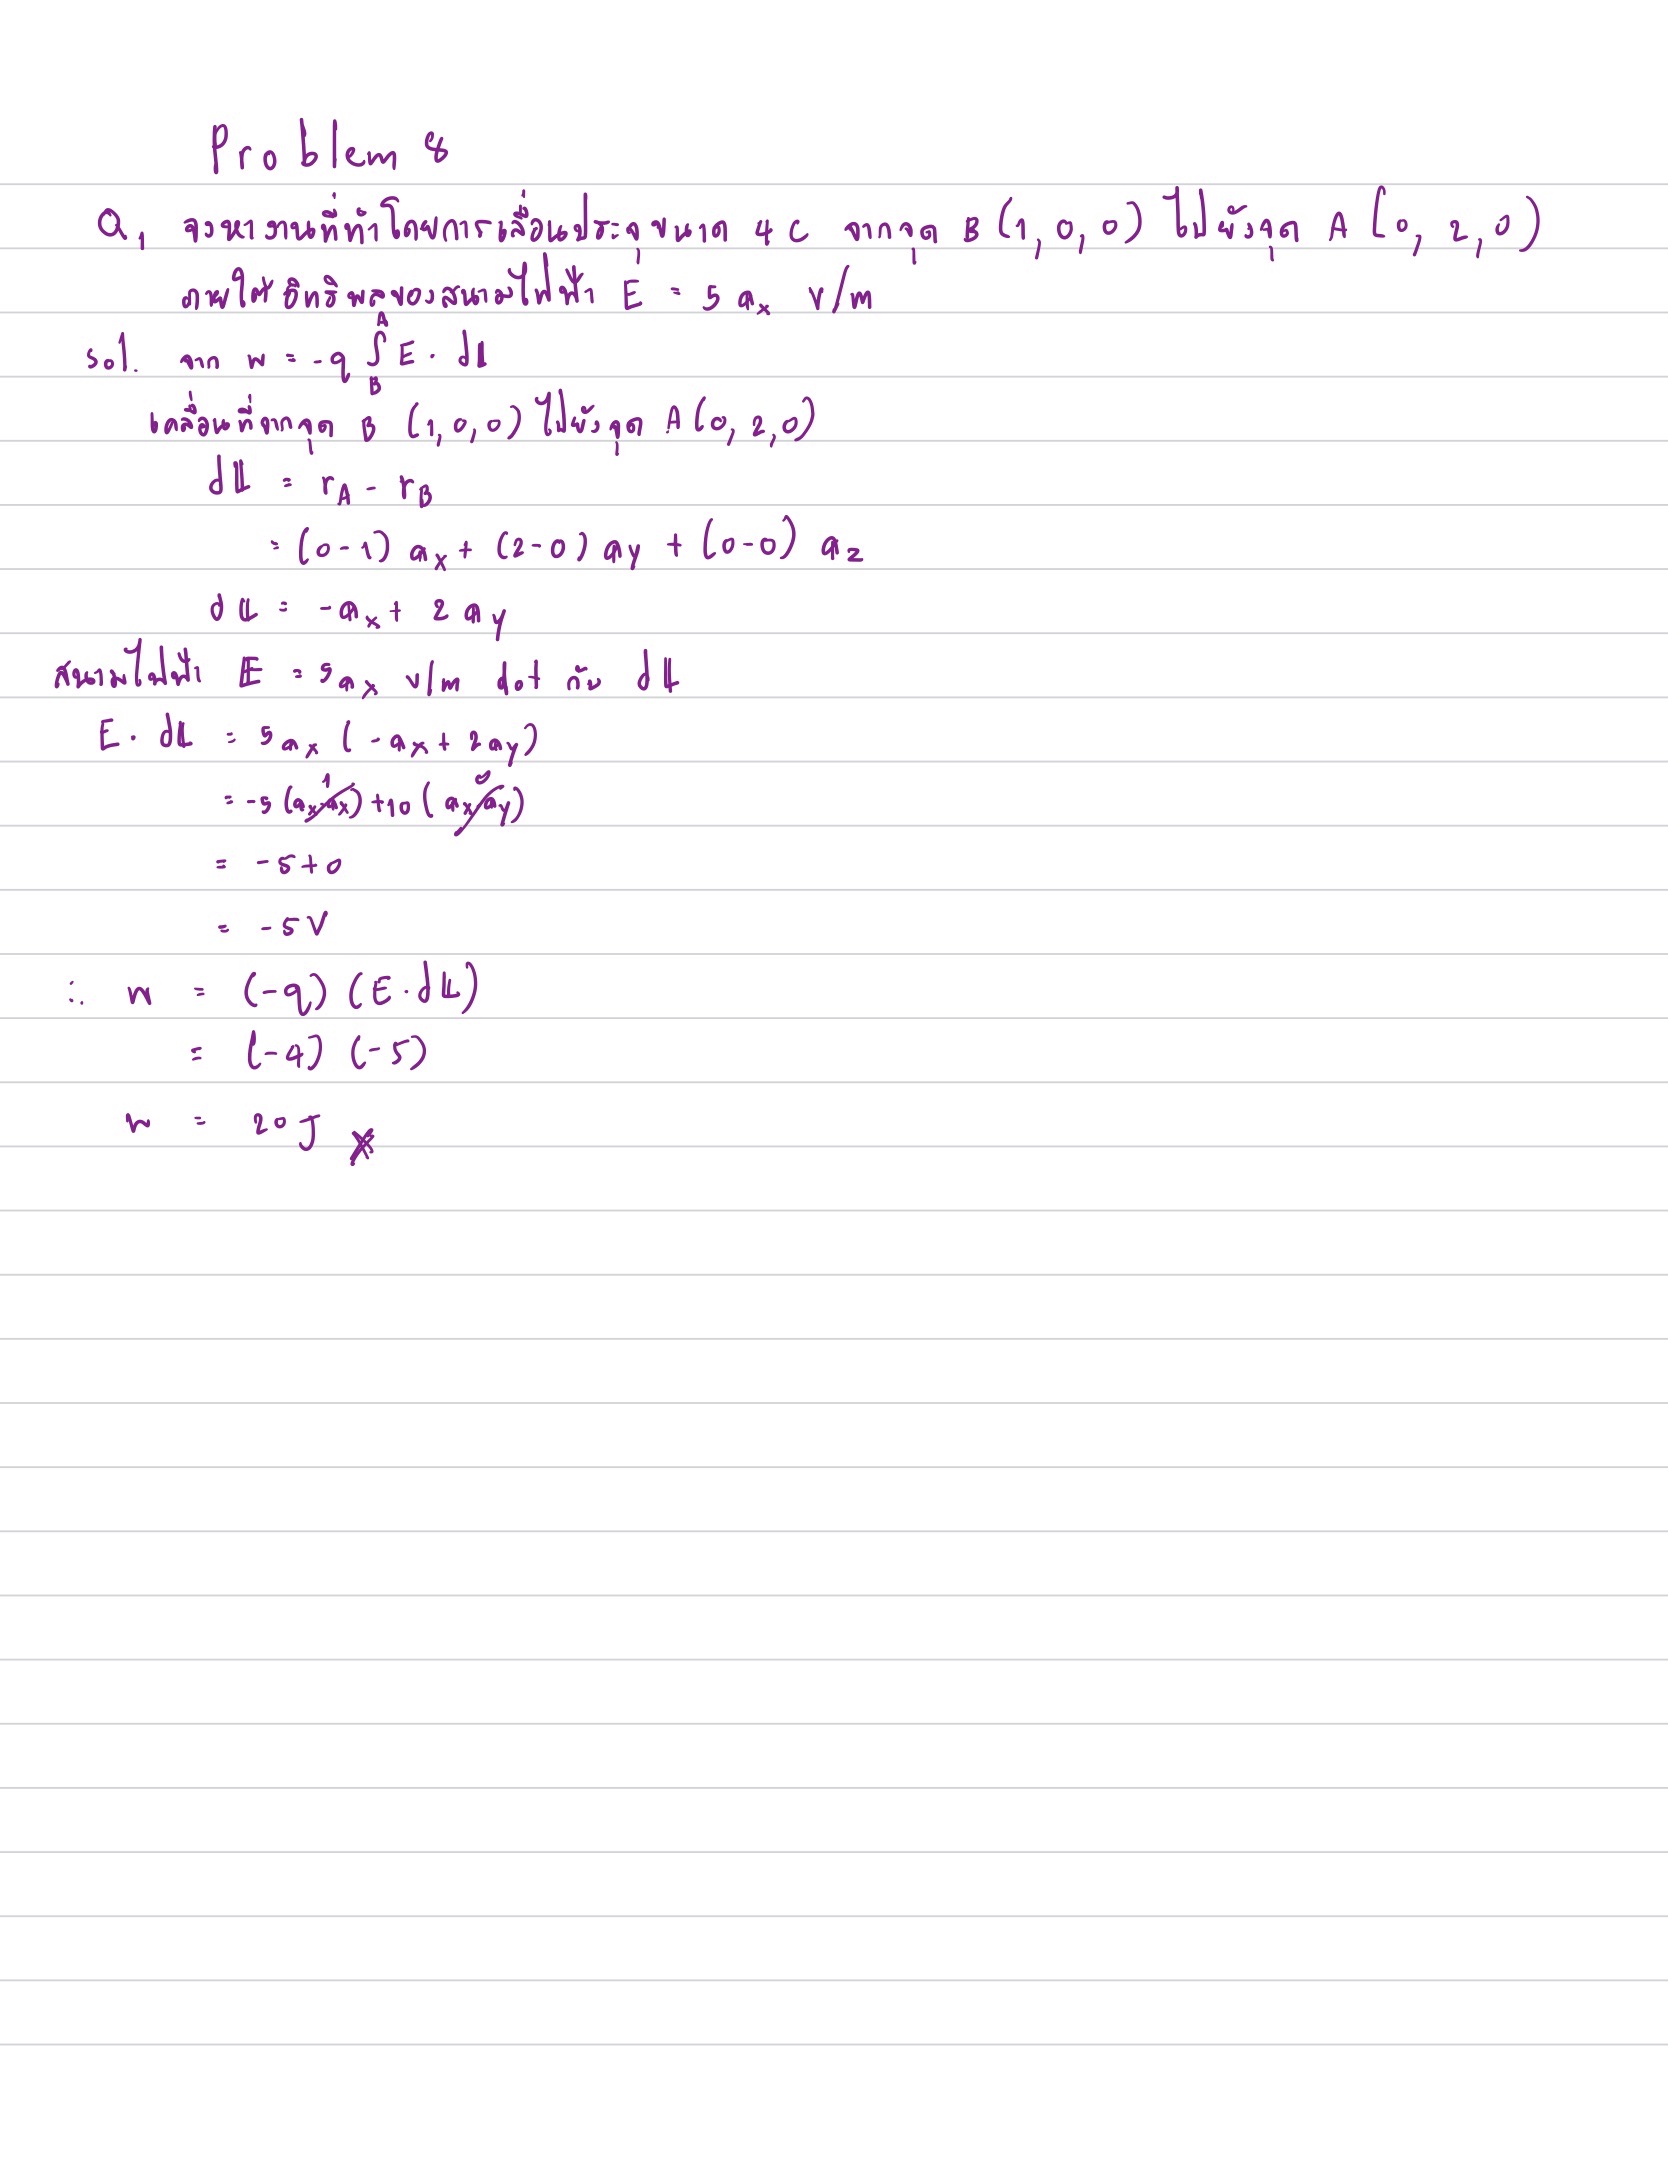 Problem 8
Q1 จงหางานที่ทำโดยการเลื่อนประจุขนาด 4 C จากจุด B (1, 0, 0) ไปยังจุด A (0, 2, 0)
ภายใต้อิทธิพลของสนามไฟฟ้า E = 5 ax V/m
sol. จาก W = -q ∫_B^A E · dL
เคลื่อนที่จากจุด B (1, 0, 0) ไปยังจุด A (0, 2, 0)
dL = rA - rB
= (0-1) ax + (2-0) ay + (0-0) az
dL = -ax + 2 ay
สนามไฟฟ้า E = 5 ax V/m dot กับ dL
E · dL = 5 ax (-ax + 2 ay)
= -5 (ax·ax)1 + 10 (ax·ay)0
= -5 + 0
= -5 V
∴ W = (-q) (E · dL)
= (-4) (-5)
W = 20 J